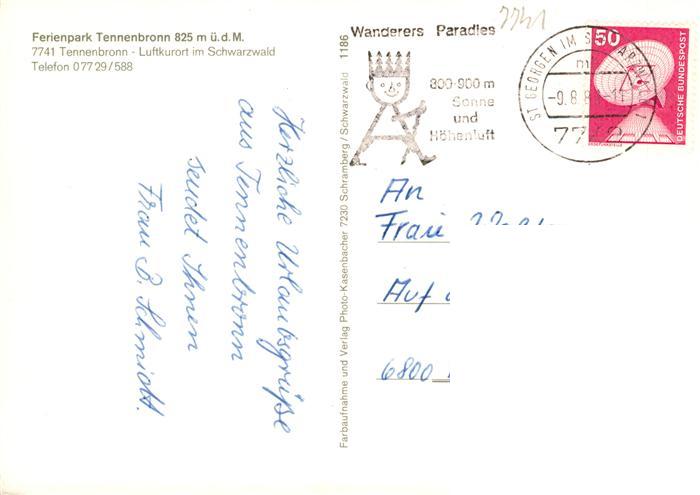 Ferienpark Tennenbronn 825 m ü.d.M.
7741 Tennenbronn - Luftkurort im Schwarzwald
Telefon 07729/588
Herzliche Urlaubsgrüße
aus Tennenbronn
sendet Ihnen
Frau B. Schmidt.
Farbaufnahme und Verlag Photo-Kasenbacher 7230 Schramberg/Schwarzwald 1186
7741
Wanderers Paradies
800-900 m
Sonne
und
Höhenluft
ST GEORGEN IM SCHWARZWALD 1
m
-9.8.8
7742
50
DEUTSCHE BUNDESPOST
ERDEFUNKSTELLE
An
Frau
Auf
6800